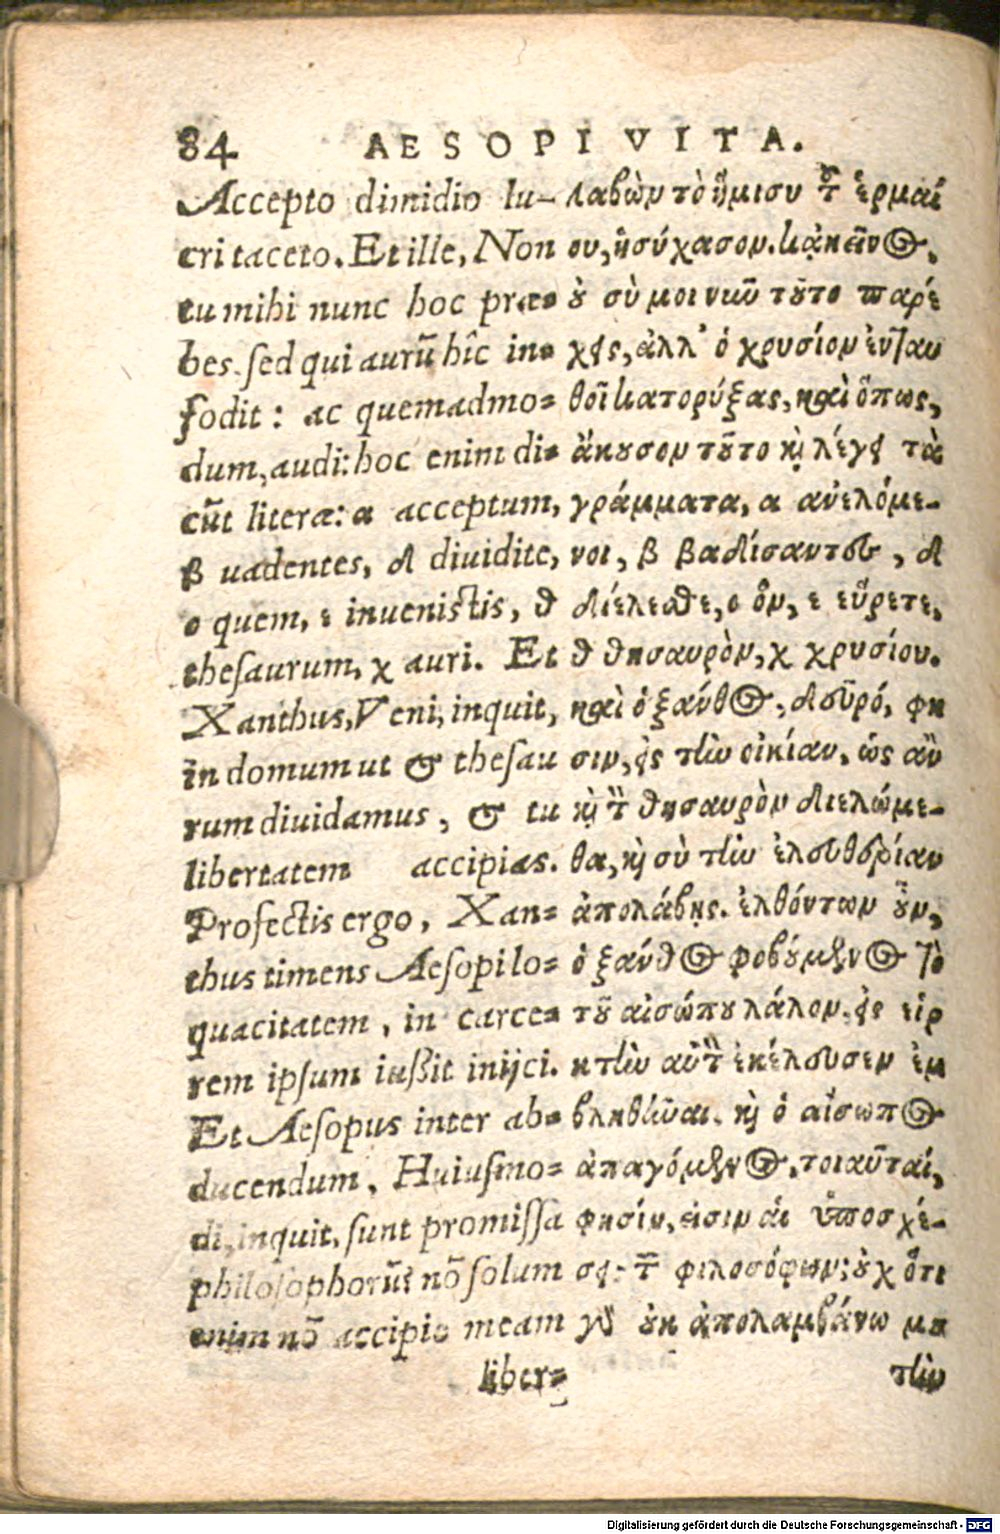 84 AESOPI VITA.
Accepto dimidio lu-
cri taceto. Et ille, Non
tu mihi nunc hoc præ-
bes. sed qui aurū hîc in-
fodit: ac quemadmo-
dum, audi: hoc enim di-
cūt literæ: α acceptum,
β uadentes, δ diuidite,
ο quem, ε inuenistis, θ
thesaurum, χ auri. Et
Xanthus, Veni, inquit,
in domum ut & thesau
rum diuidamus, & tu
libertatem accipias.
Profectis ergo, Xan-
thus timens Aesopi lo-
quacitatem, in carce-
rem ipsum iussit inijci.
Et Aesopus inter ab-
ducendum, Huiusmo-
di, inquit, sunt promissa
philosophorū? nō solum
enim nō accipio meam
liber-
λαβὼν τὸ ἥμισυ τ͂ ἑρμαί
ου, ἡσύχασον. κἀκεῖνος,
ὀυ σὺ μοι νιῦ τȣ͂το παρέ
χεις, ἀλλ' ὁ χρυσίον ἐνταυ
θοῖ κατορύξας, καὶ ὅπως,
ἄκȣσον τȣ͂το κ̀ λέγει τὰ
γράμματα, α ἀνελόμε-
νοι, β βαδίσαντες, δ
διέλεσθε, ο ὃν, ε εὕρετε,
θ θησαυρὸν, χ χρυσίου.
καὶ ὁ ξάνθος, δεῦρό, φη
σιν, εἰς τὴν οἰκίαν, ὡς ἂν
κ̀ τ̀ θησαυρὸν διελώμε-
θα, κ̀ σὺ τὴν ἐλευθερίαν
ἀπολάβῃς. ἐλθόντων ȣ̓͂ν,
ὁ ξάνθος φοβȣ́μενος τὸ
τȣ͂ αἰσώπȣ λάλον, εἰς εἱρ
κτὴν αὐτ̀ ἐκέλευσεν ἐμ
βληθῆναι. κ̀ ὁ αἴσωπος
ἀπαγόμενος, τοιαῦταί,
φησίν, εἰσιν αἱ ὑποσχέ-
σεις τ͂ φιλοσόφων; ȣ̓χ ὅτι
γὸ ȣ̓κ ἀπολαμβάνω μȣ
τὴν
Digitalisierung gefördert durch die Deutsche Forschungsgemeinschaft - DFG